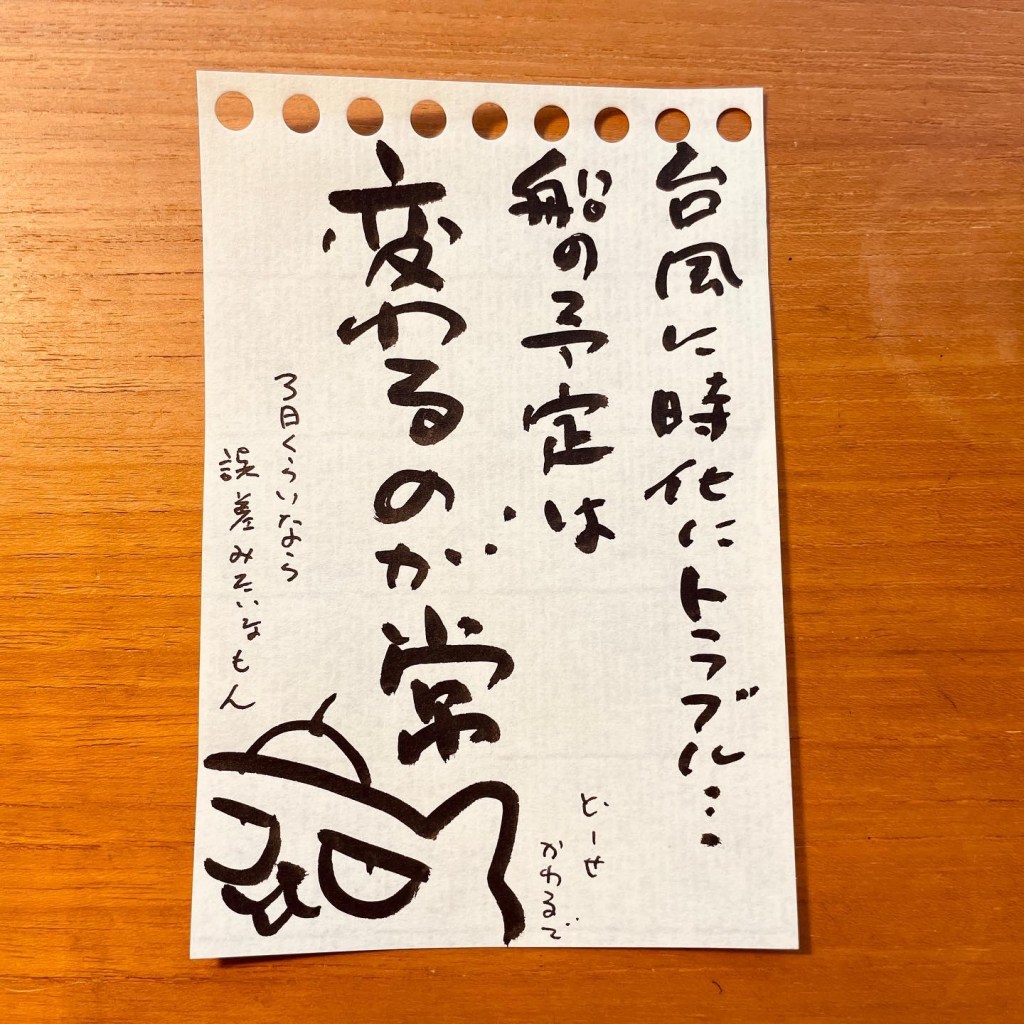 台風に時化にトラブル…
船の予定は
変わるのが常
3日くらいなら
誤差みたいなもん
どーせ
かわるで